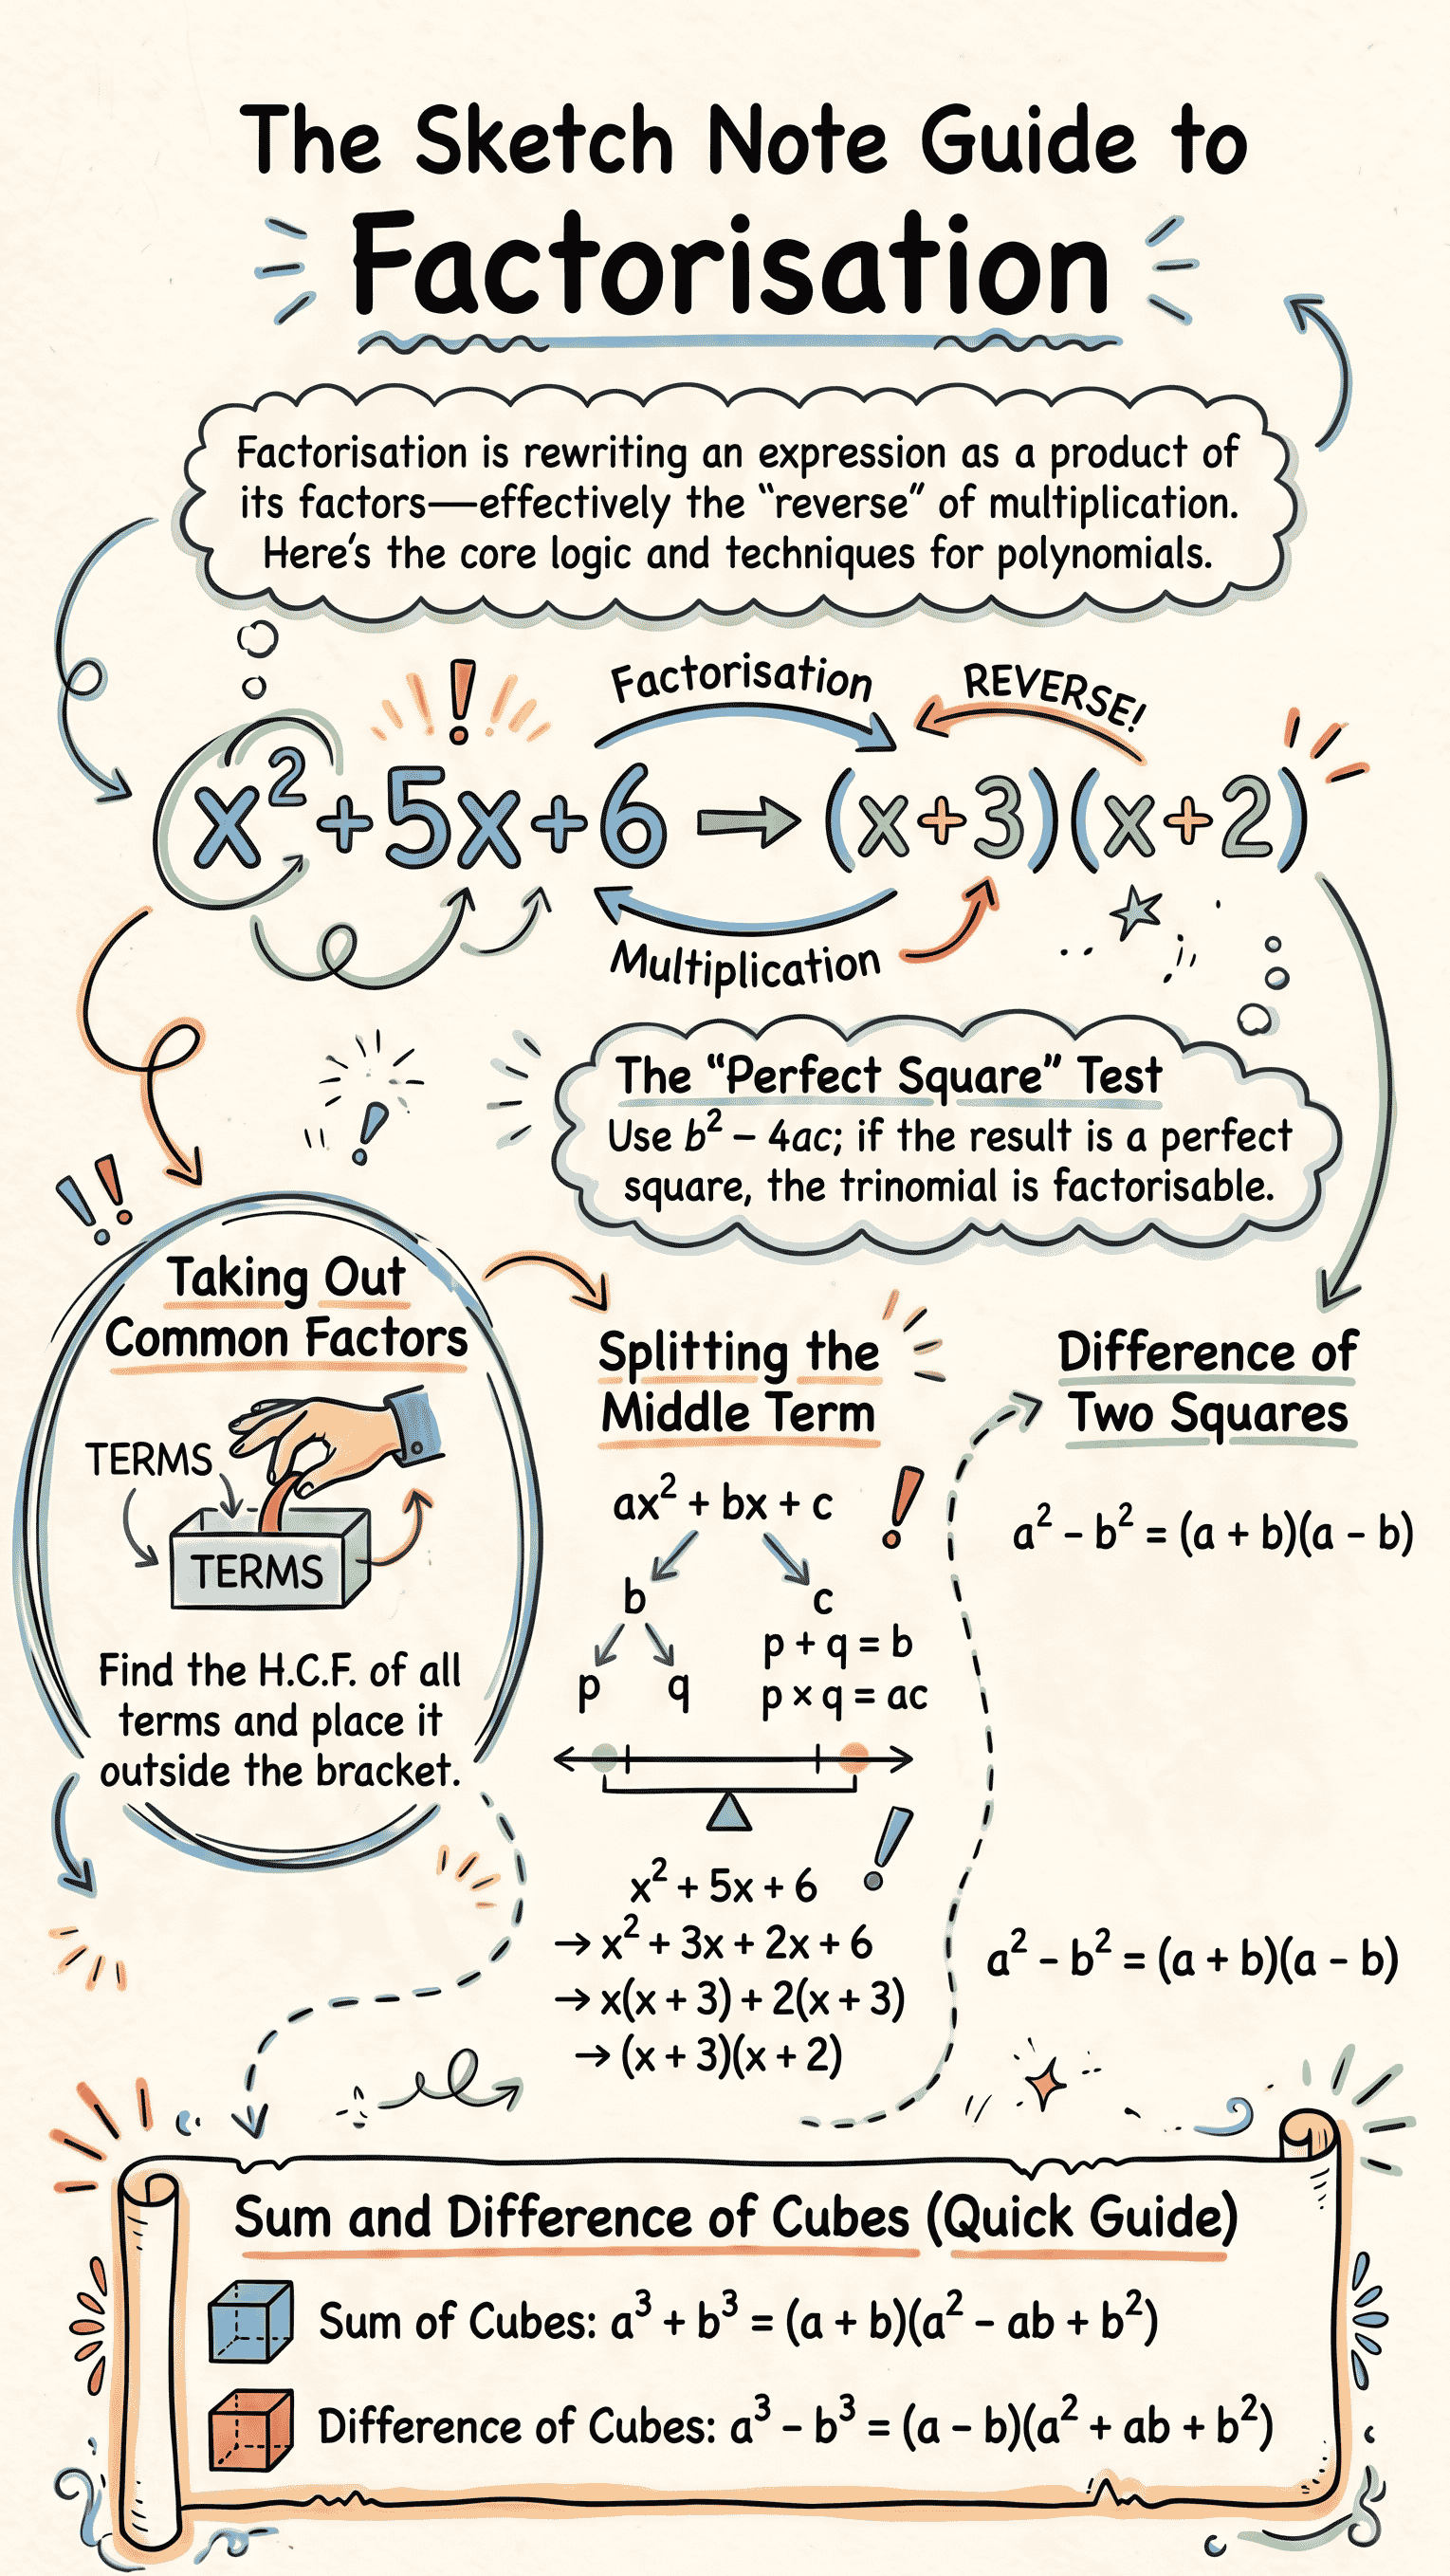 The Sketch Note Guide to
Factorisation
Factorisation is rewriting an expression as a product of
its factors—effectively the “reverse” of multiplication.
Here’s the core logic and techniques for polynomials.
Factorisation
REVERSE!
x² + 5x + 6 → (x + 3)(x + 2)
Multiplication
The “Perfect Square” Test
Use b² – 4ac; if the result is a perfect
square, the trinomial is factorisable.
Taking Out
Common Factors
TERMS
TERMS
Find the H.C.F. of all
terms and place it
outside the bracket.
Splitting the
Middle Term
ax² + bx + c
b c
p + q = b
p q p × q = ac
x² + 5x + 6
→ x² + 3x + 2x + 6
→ x(x + 3) + 2(x + 3)
→ (x + 3)(x + 2)
Difference of
Two Squares
a² – b² = (a + b)(a – b)
a² – b² = (a + b)(a – b)
Sum and Difference of Cubes (Quick Guide)
Sum of Cubes: a³ + b³ = (a + b)(a² – ab + b²)
Difference of Cubes: a³ – b³ = (a – b)(a² + ab + b²)